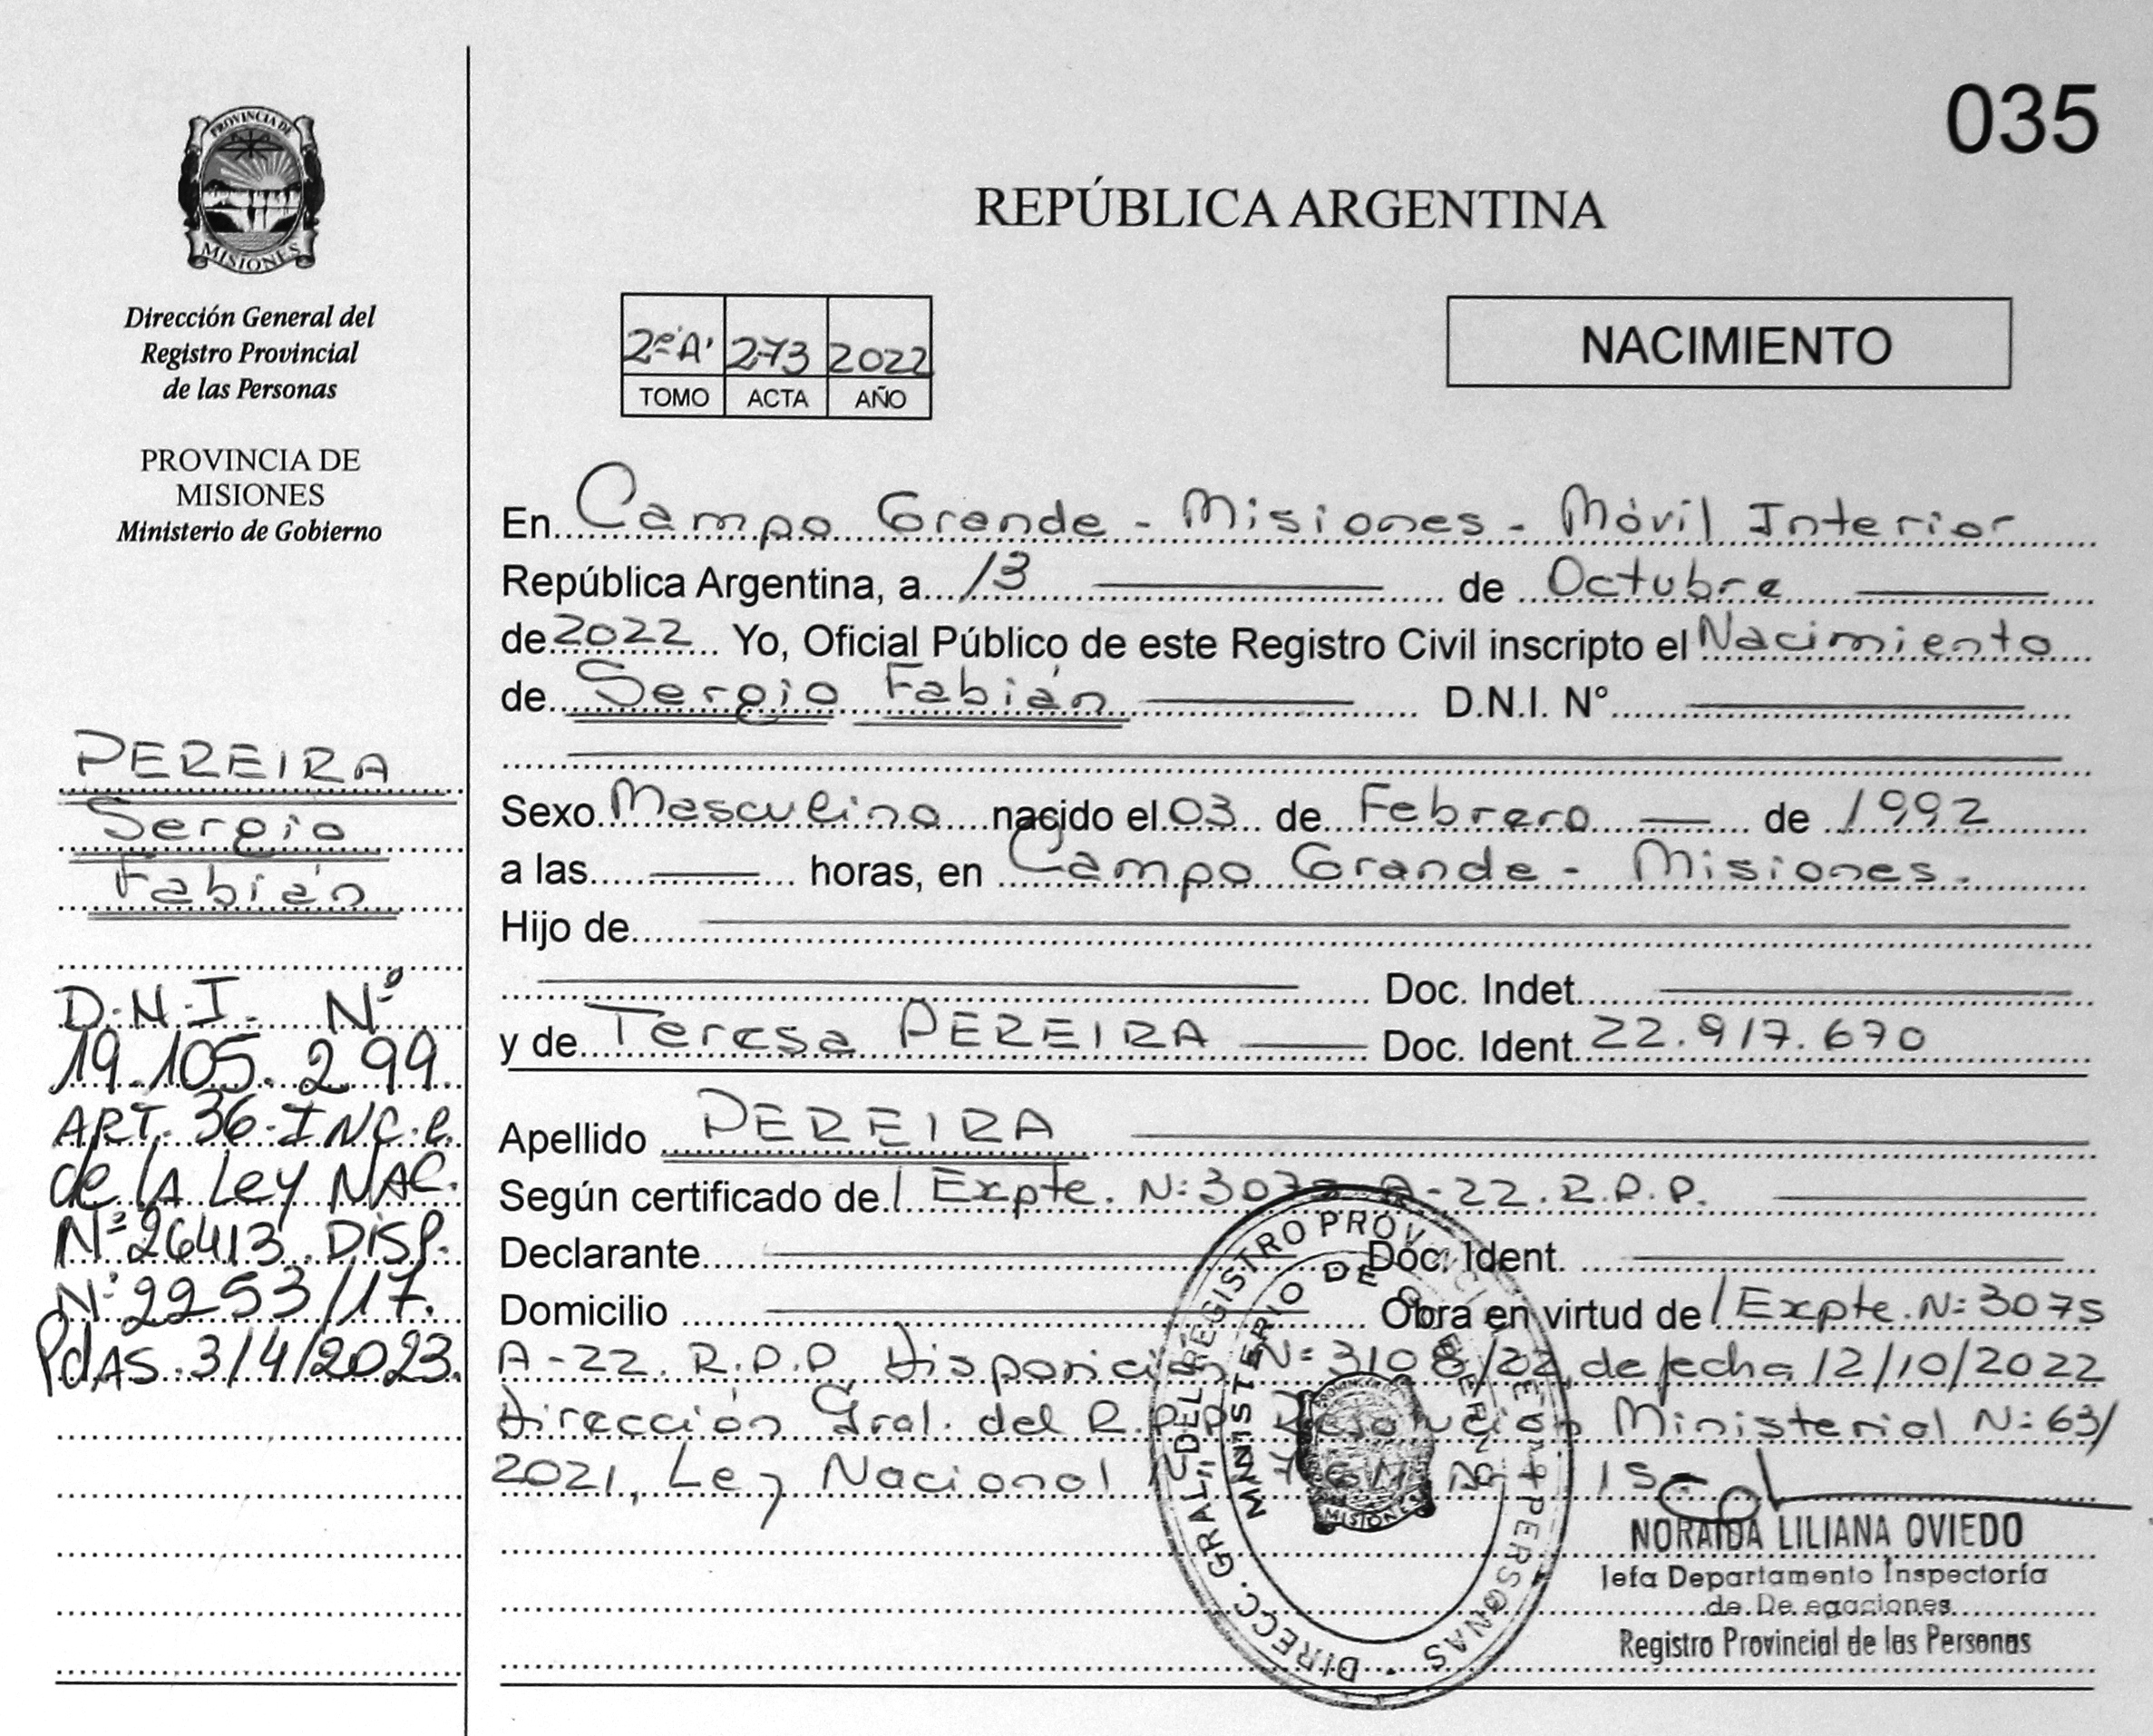 PROVINCIA DE
MISIONES
Dirección General del
Registro Provincial
de las Personas
PROVINCIA DE
MISIONES
Ministerio de Gobierno
PEREIRA
Sergio
Fabián
D.N.I. Nº
19.105.299
ART. 36-INC.c.
de la Ley NAC.
Nº 26413 DISP.
Nº 2253/17.
PdAS. 3/4/2023.
035
REPÚBLICA ARGENTINA
2º"A" 273 2022
TOMO ACTA AÑO
NACIMIENTO
En Campo Grande - Misiones - Móvil Interior
República Argentina, a 13 de Octubre
de 2022 Yo, Oficial Público de este Registro Civil inscripto el Nacimiento
de Sergio Fabián D.N.I. N°
Sexo Masculino nacido el 03 de Febrero de 1992
a las horas, en Campo Grande - Misiones.
Hijo de
Doc. Indet.
y de Teresa PEREIRA Doc. Ident. 22.917.670
Apellido PEREIRA
Según certificado de Expte. N: 3075 A-22.R.P.P.
Declarante Doc. Ident.
Domicilio Obra en virtud de Expte. N: 3075
A-22. R.P.P. Disposición N: 3108/22, de fecha 12/10/2022
Dirección Gral. del R.P.P. Resolución Ministerial N: 63/
2021, Ley Nacional
DIRECC. GRAL. DEL REGISTRO PROVINCIAL DE LAS PERSONAS
MINISTERIO DE GOBIERNO
MISIONES
NORAIDA LILIANA OVIEDO
Jefa Departamento Inspectoría
de Delegaciones
Registro Provincial de las Personas